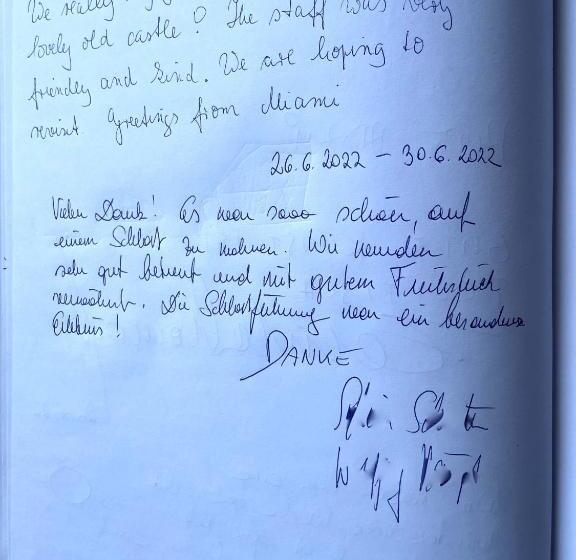 We really
lovely old castle! The staff was very
friendly and kind. We are hoping to
revisit. Greetings from Miami
26.6.2022 – 30.6.2022
Vielen Dank! Es war sooo schön, auf
einem Schloß zu wohnen. Wir wurden
sehr gut betreut und mit gutem Frühstück
verwöhnt. Die Schloßführung war ein besonderes
Erlebnis!
DANKE